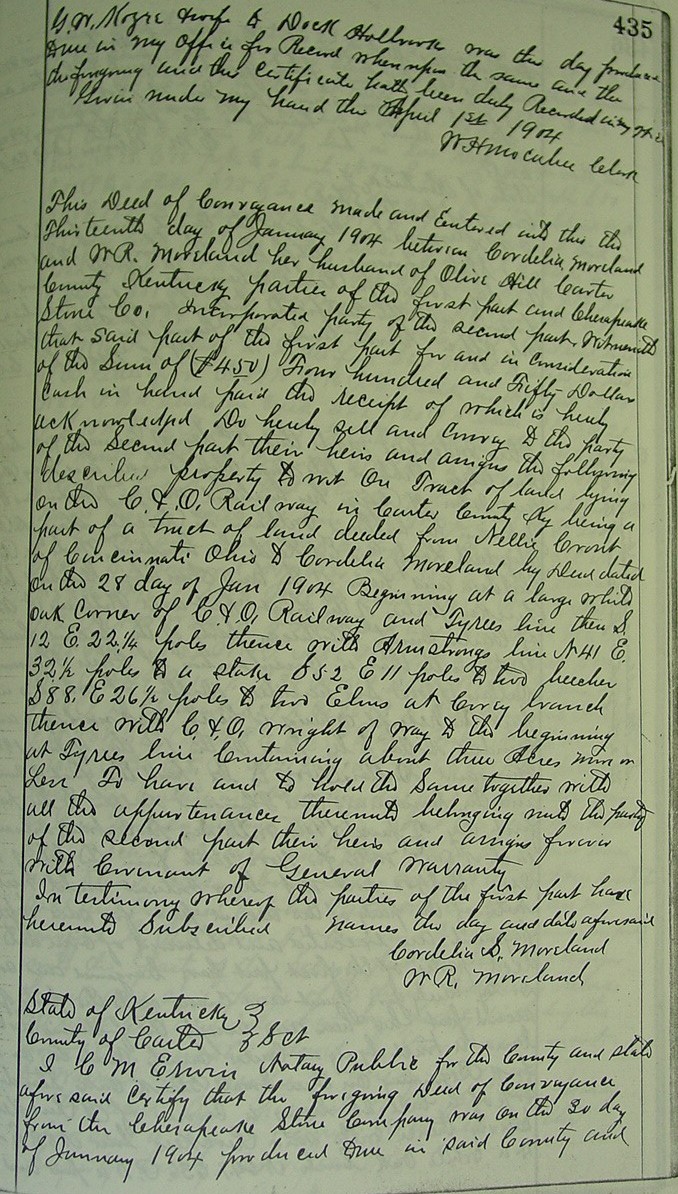 435
G. W. Kozee & wife to Dock Holbrook was this day produced
to me in my Office for Record whereupon the same and the
foregoing and this Certificate hath been duly Recorded in my office
Given under my hand this April 1st 1904
Clerk
This Deed of Conveyance made and Entered into this the
Thirteenth day of January 1904 between Cordelia Moreland
and W.R. Moreland her husband of Olive Hill Carter
County Kentucky parties of the first part and Chesapeake
Stone Co. Incorporated party of the second part, Witnesseth
that said part of the first part for and in Consideration
of the Sum of ($450) Four hundred and Fifty Dollars
Cash in hand paid the receipt of which is hereby
acknowledged Do hereby sell and Convey to the party
of the Second part their heirs and assigns the following
described property to wit On Tract of land lying
on the C. & O. Railway in Carter County Ky being a
part of a tract of land deeded from Nellie
of Cincinnati Ohio to Cordelia Moreland by Deed dated
on the 28 day of Jan 1904 Beginning at a large white
oak Corner of C. & O, Railway and Tyrees line then S.
12 E. 22 1/4 poles thence with Armstrongs line N 41 E.
32 1/2 poles to a stake S 52 E 11 poles to two beeches
S 88. E 26 1/2 poles to two Elms at branch
thence with C. & O, wright of way to the beginning
at Tyrees line Containing about three Acres more or
Less To have and to hold the Same together with
all the appurtenances thereunto belonging unto the party
of the second part their heirs and assigns forever
with Covenant of General Warranty
In testimony whereof the parties of the first part have
hereunto Subscribed names the day and date aforesaid
Cordelia S. Moreland
W R. Moreland
State of Kentucky }
County of Carter } Sct
I C M Erwin Notary Public for the County and state
afore said Certify that the foregoing Deed of Conveyance
from the Chesapeake Stone Company was on the 30 day
of January 1904 produced to me in said County and